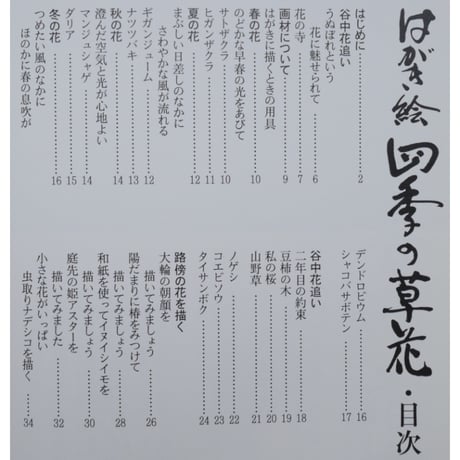 はがき絵 四季の草花・目次
はじめに……2
谷中花追い
うぬぼれという
花に魅せられて……6
花の寺……7
画材について……9
はがきに描くときの用具
春の花……10
のどかな早春の光をあびて
サトザクラ……10
ヒガンザクラ……11
夏の花……12
まぶしい日差しのなかに
さわやかな風が流れる
ギガンジューム……12
ナツツバキ……13
秋の花……14
澄んだ空気と光が心地よい
マンジュシャゲ……14
ダリア……15
冬の花……16
つめたい風のなかに
ほのかに春の息吹が
デンドロビウム……16
シャコバサボテン……17
谷中花追い
二年目の約束……18
豆柿の木……19
私の桜……20
山野草……21
ノゲシ……22
コエビソウ……23
タイサンボク……24
路傍の花を描く
大輪の朝顔を
描いてみましょう……26
陽だまりに椿をみつけて
描いてみましょう……28
和紙を使ってイヌイシイモを
描いてみましょう……30
庭先の姫アスターを
描いてみました……32
小さな花がいっぱい
虫取りナデシコを描く……34